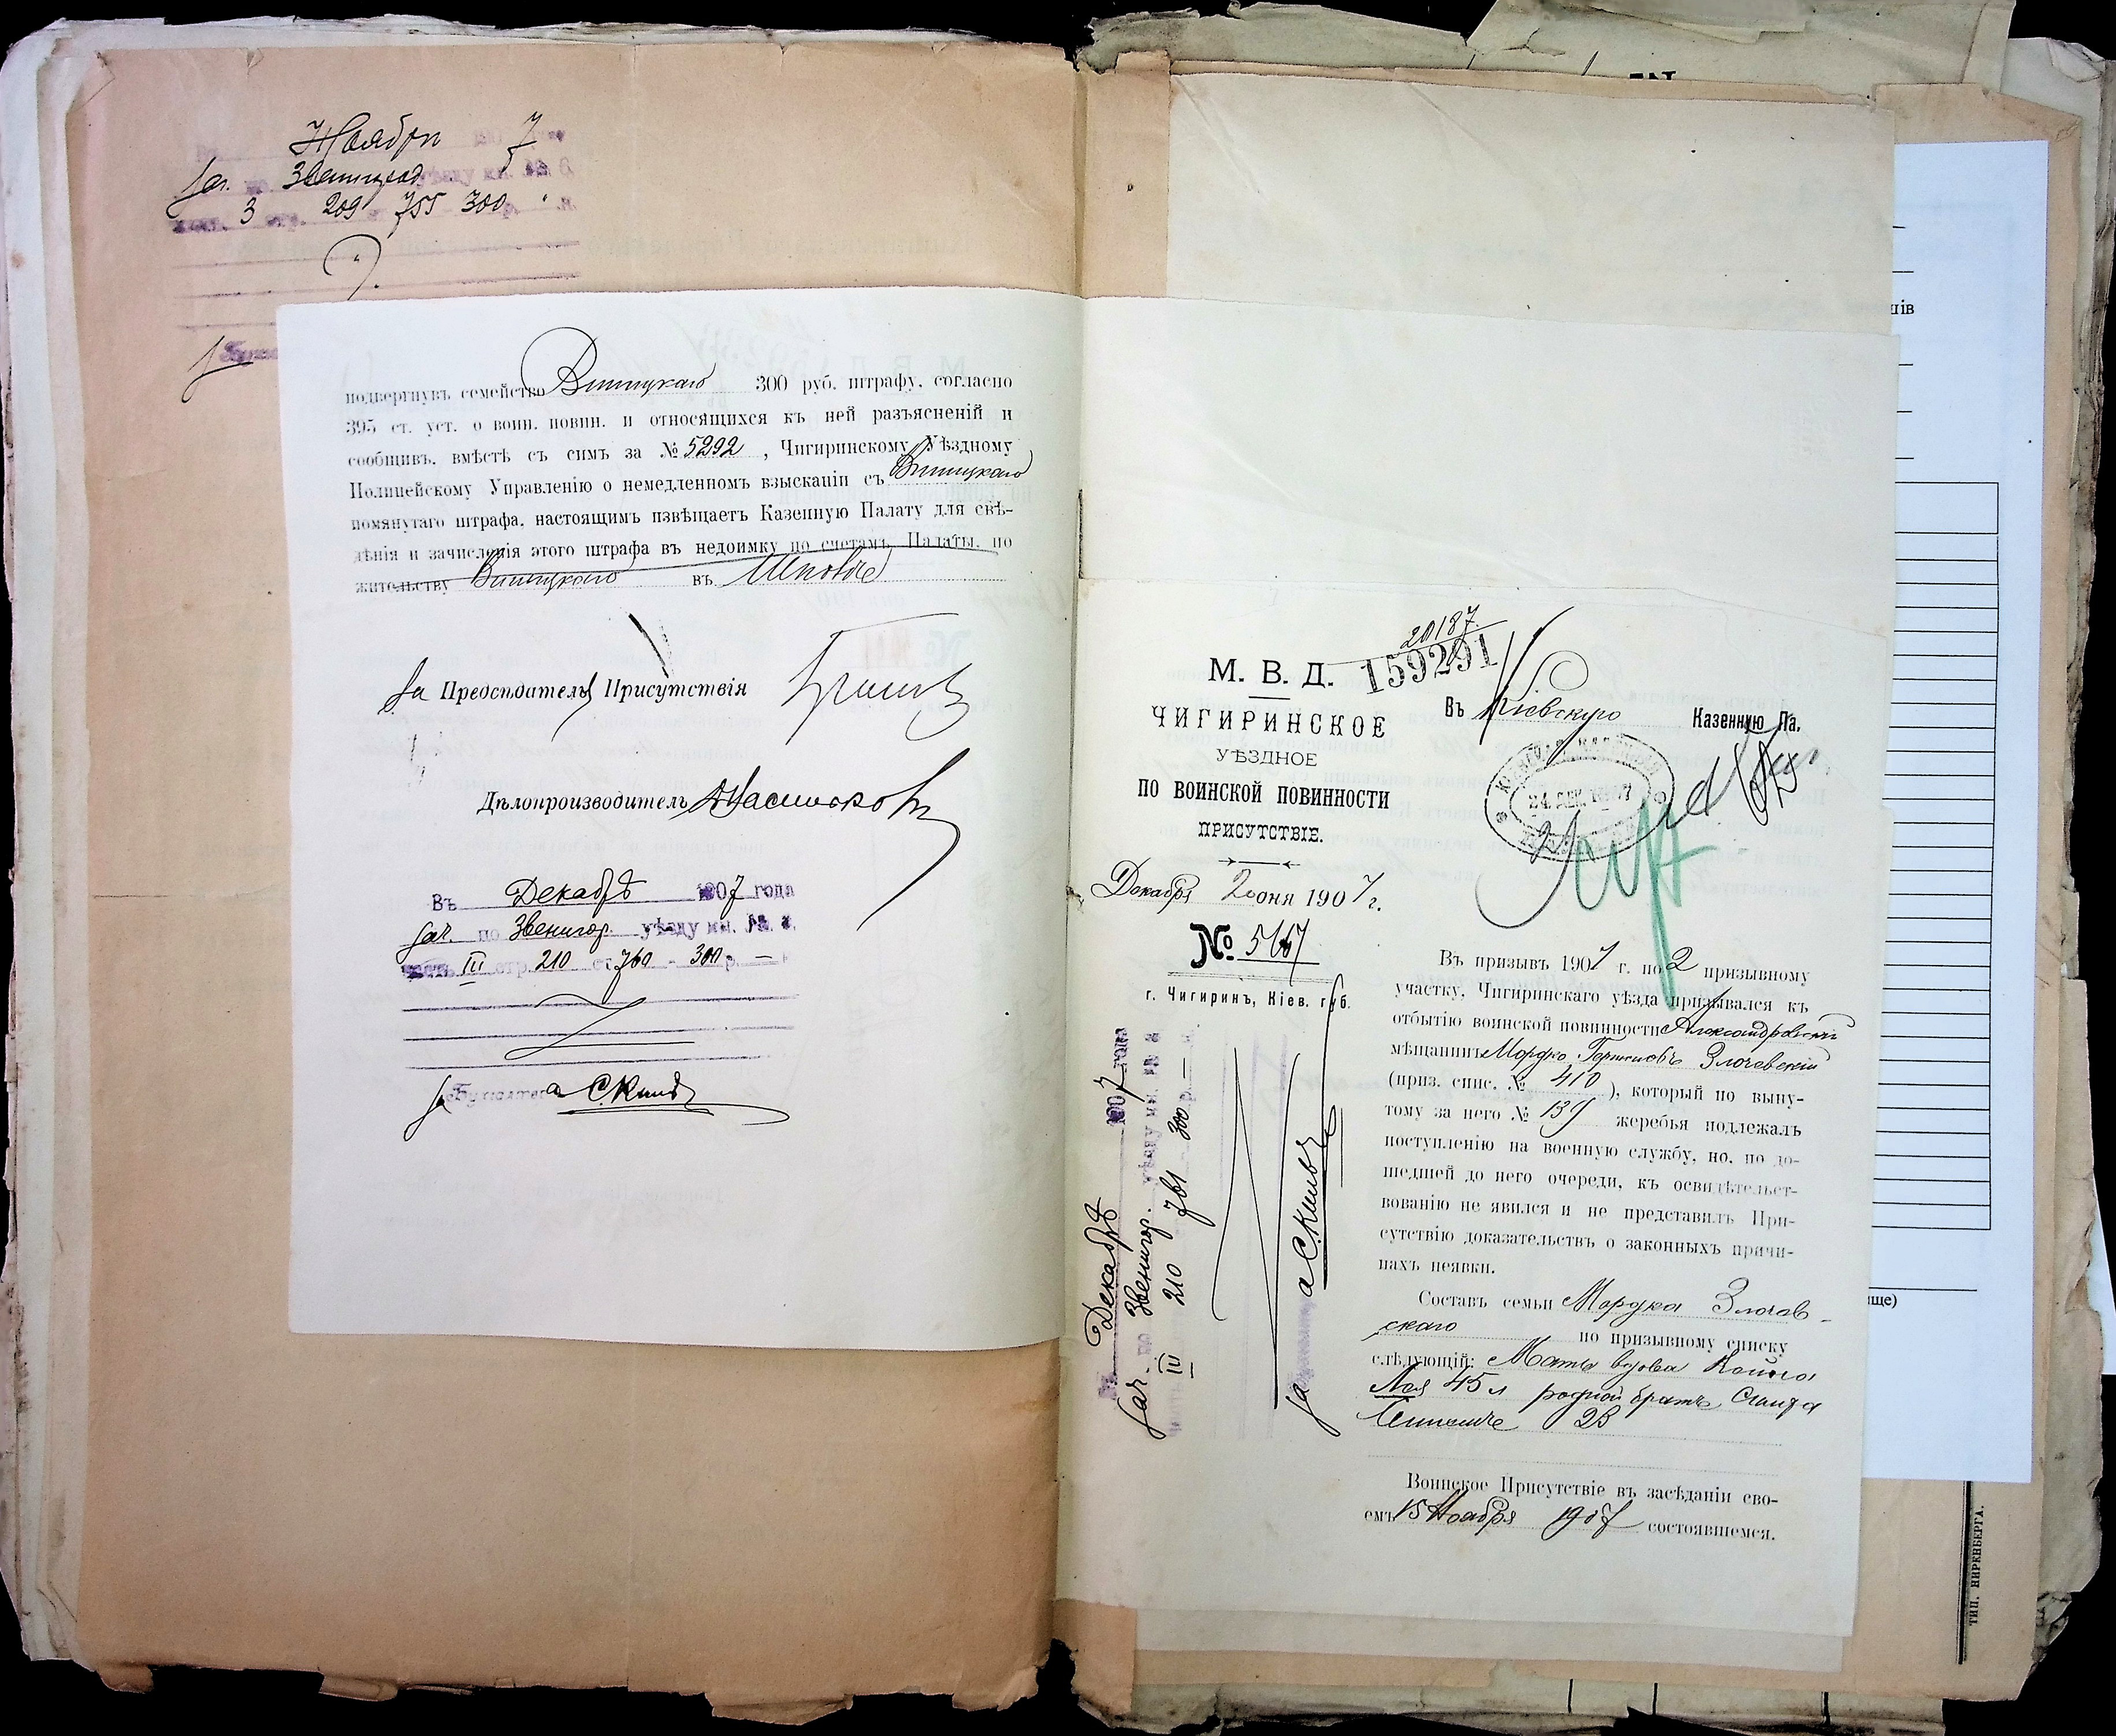 Ноября 7
Звенигород. уѣзду кн. №
3 209 755 300
подвергнувъ семейство Винницкаго 300 руб. штрафу, согласно
395 ст. уст. о воин. повин. и относящихся къ ней разъясненій и
сообщивъ, вмѣстѣ съ симъ за № 5292, Чигиринскому Уѣздному
Полицейскому Управленію о немедленномъ взысканіи съ Винницкаго
помянутаго штрафа, настоящимъ извѣщаетъ Казенную Палату для свѣ-
дѣнія и зачисленія этого штрафа въ недоимку по счетамъ Палаты, по
жительству Винницкаго въ
За Предсѣдателя Присутствія
Дѣлопроизводитель
Въ Декабрѣ 1907 года
зач. по Звенигор. уѣзду кн. №
часть III стр. 210 ст. 760 - 300 р. —
За Бухгалтера
20187.
159291
М. В. Д.
ЧИГИРИНСКОЕ
УѢЗДНОЕ
ПО ВОИНСКОЙ ПОВИННОСТИ
ПРИСУТСТВІЕ.
Декабря 2 дня 1907 г.
№ 5667
г. Чигиринъ, Кіев. губ.
Въ Кіевскую Казенную Па.
24 ДЕК. 1907
Въ призывъ 1907 г. по 2 призывному
участку, Чигиринскаго уѣзда призывался къ
отбытію воинской повинности Александровскій
мѣщанинъ Мордко Гершковъ Злочевскій
(приз. спис. № 410), который по выну-
тому за него № 139 жеребья подлежалъ
поступленію на военную службу, но, по до-
шедшей до него очереди, къ освидѣтельст-
вованію не явился и не представилъ При-
сутствію доказательствъ о законныхъ причи-
нахъ неявки.
Составъ семьи Мордка Злочев-
скаго по призывному списку
слѣдующій: Мать вдова
45 л родной братъ
23
Воинское Присутствіе въ засѣданіи сво-
емъ 15 Ноября 1907 состоявшемся.
Въ Декабрѣ 1907 года
зач. по Звенигор. уѣзду кн. №
часть III 210 761 300 р. —
ТИП. НИРЕНБЕРГА.